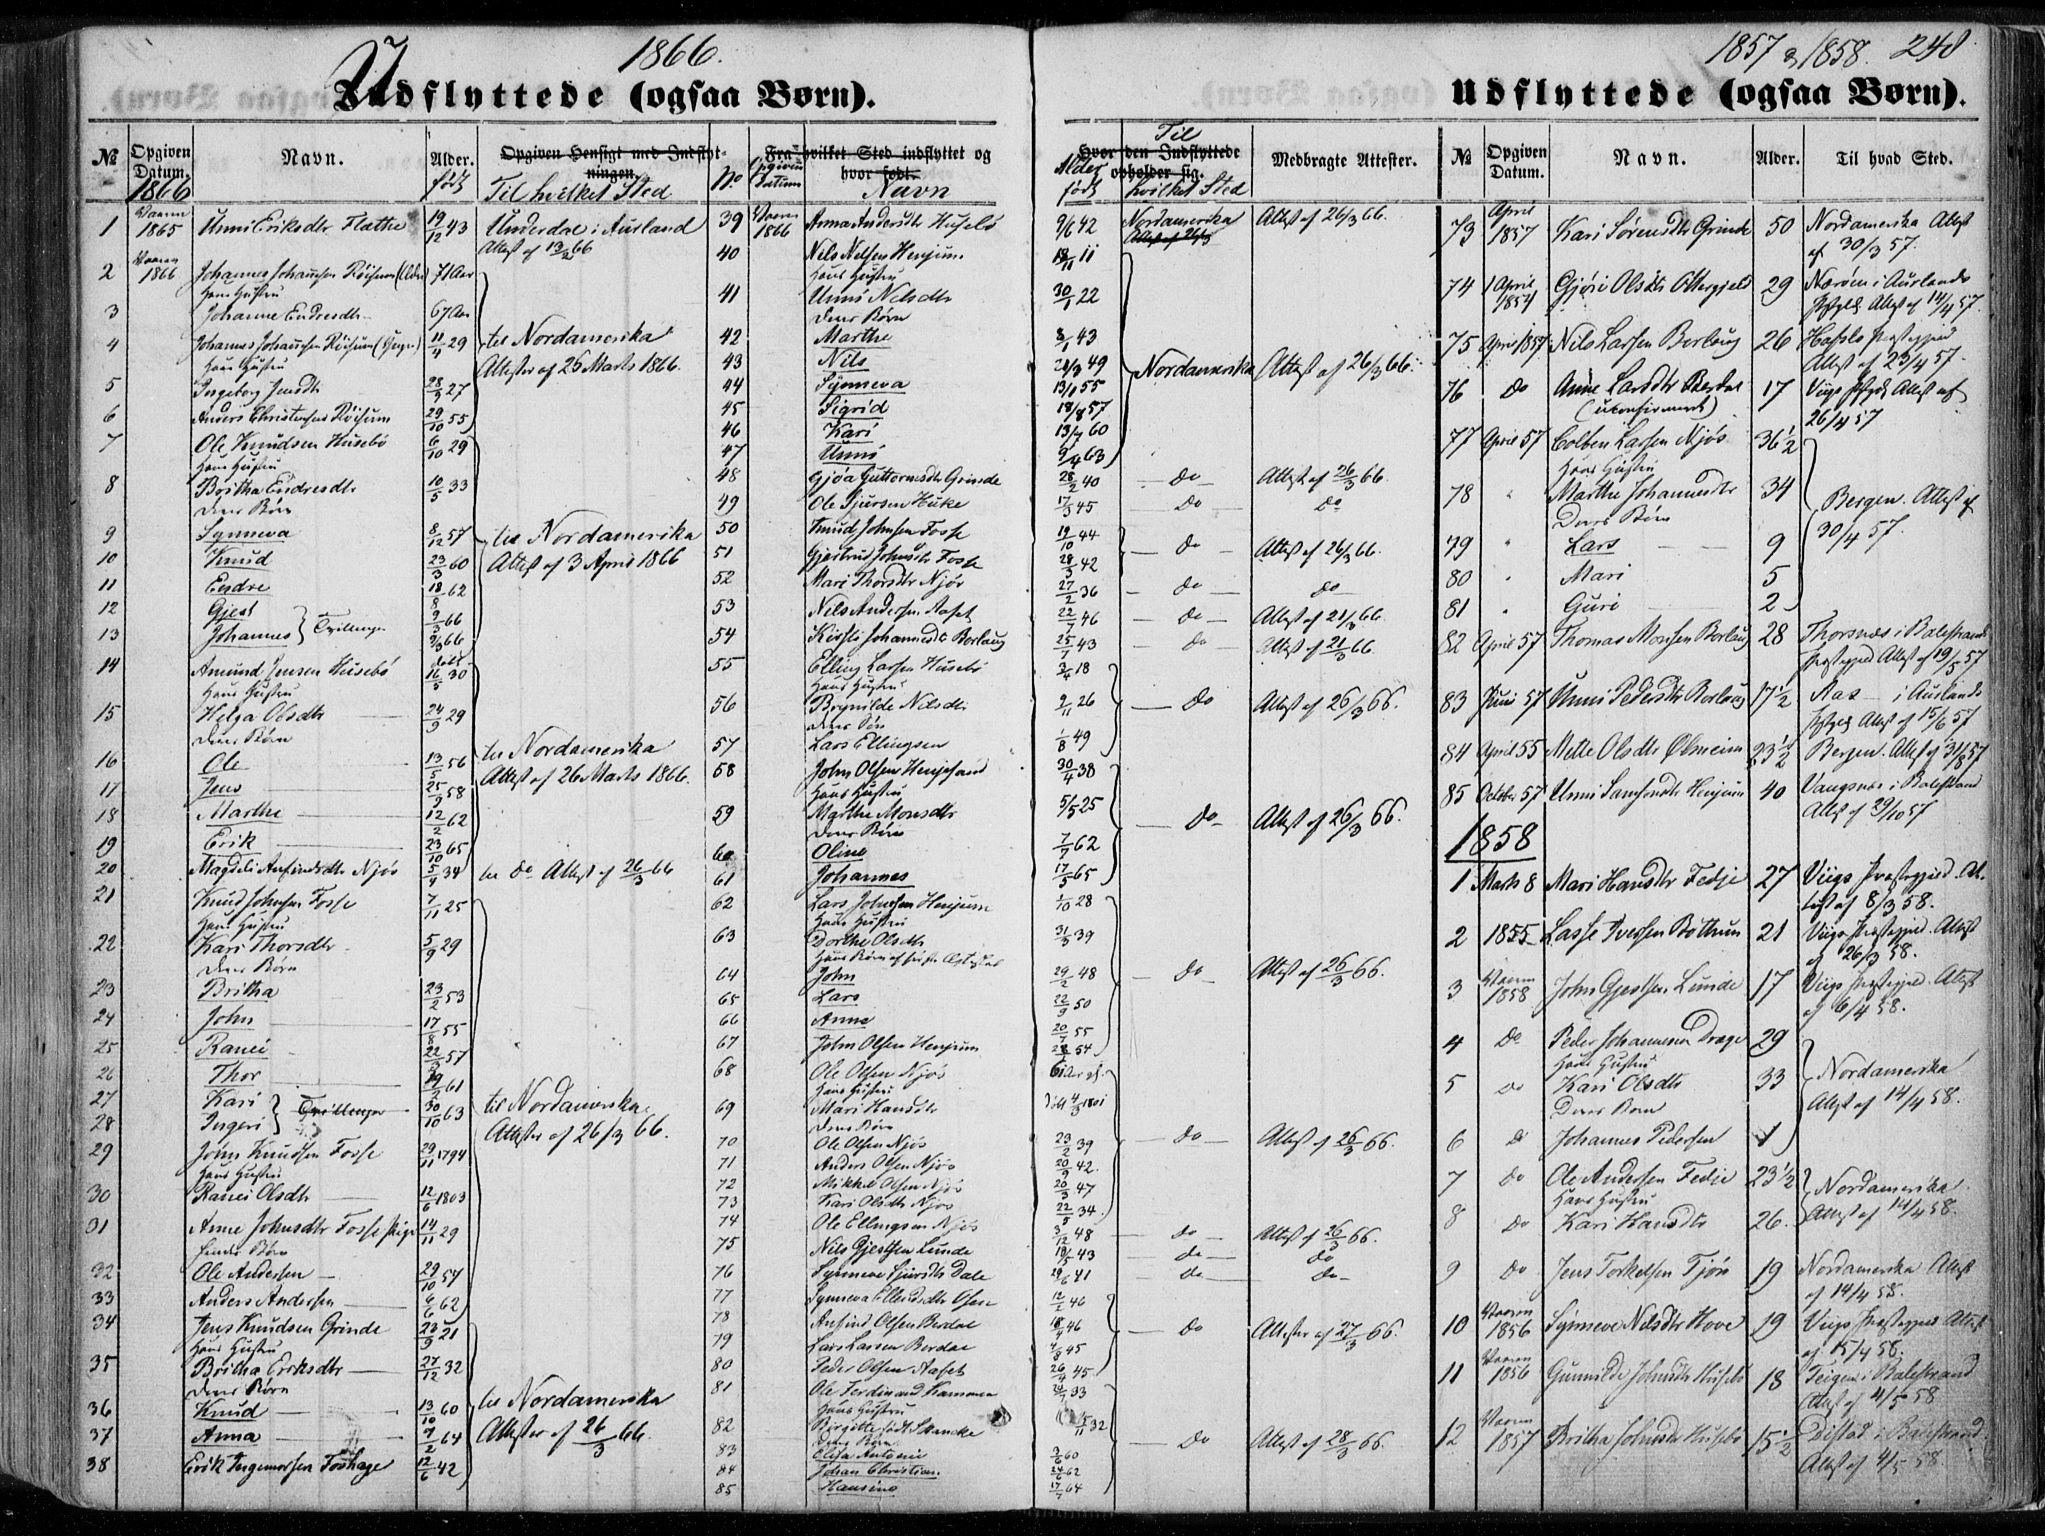 1866.
Udflyttede (ogsaa Børn).
№ Opgiven Datum. Navn. Alder. Opgiven Hensigt med Indflytningen. Fra hvilket Sted indflyttet og hvor født.
1866 født Til hvilket Sted No Opgiven Datum Navn
1 Vaaren 1865 Unni Eriksdtr Flæthe 19/12 43 Underdal i Aurland
Attest af 13/2 66
2 Vaaren 1866 Johannes Johannsen Røisum (Eldre) 71 Aar
Hans Hustru
3 Johanne Endresdtr 67 Aar
4 Johannes Johannsen Røisum (Yngre) 11/4 29 til Nordamerika
Hans Hustru Attester af 26 Marts 1866.
5 Ingeborg Jensdtr 28/3 27
6 Anders Christensen Røisum 29/10 55
7 Ole Knudsen Husebø 6/10 29
Hans Hustru
8 Britha Endresdtr 10/5 33
Deres Børn
9 Synneva 8/12 57 til Nordamerika
10 Knud 23/3 60 Attest af 3 April 1866
11 Endre 18/8 62
12 Gjest 9/3 66
13 Johannes } Tvillinger 9/3 66
14 Amund Jensen Husebø født 16/5 30
Hans Hustru
15 Helga Olsdtr 24/9 29
Deres Børn
16 Ole 13/5 56 til Nordamerika
17 Jens 25/9 58 Attest af 26 Marts 1866.
18 Marthe 12/2 62
19 Erik 23/10 65
20 Magdeli Anfindsdtr Njøs 5/9 34 til do Attest af 26/3 66
21 Knud Johnsen Fosse 7/11 25
Hans Hustru
22 Kari Thorsdtr 5/9 29
Deres Børn
23 Britha 23/2 53
24 John 17/8 55
25 Ranei 22/3 57
26 Thor 61
27 Kari } Tvillinger 30/10 63 til Nordamerika
28 Ingeri Attester af 26/3 66.
29 John Knudsen Fosse 29/11 1794
Hans Hustru
30 Ranei Olsdtr 12/6 1803
31 Anne Johnsdtr Fosse pige 14/11 29
hendes Børn
32 Ole Andersen 29/10 57
33 Anders Andersen 6/6 62
34 Jens Knudsen Grinde 23/3 21
Hans Hustru
35 Britha Eriksdtr 27/12 32
Deres Børn
36 Knud 13/10 60 til Nordamerika
37 Anna 7/2 64 Attester af 26/3 66.
38 Erik Ingemorsen Foshage 12/6 42
39 Vaaren 1866 Anna Andersdtr Husebø
40 Nils Nilsen Henjum
Hans Hustru
41 Unni Nilsdtr
Deres Børn
42 Marthe
43 Nils
44 Synneva
45 Sigrid
46 Kari
47 Unni
48 Gjøa Guttormsdtr Grinde
49 Ole Sjursen Huke
50 Knud Johnsen Fosse
51 Gjertrud Johnsdtr Fosse
52 Mari Thorsdtr Njøs
53 Nils Andersen Aaset
54 Kirsti Johannesdtr Borlaug
55 Elling Larsen Husebø
Hans Hustru
56 Brynilde Nilsdtr
Deres Børn
57 Lars Ellingsen
58 John Olsen Henjesand
Hans Hustru
59 Marthe Monsdtr
Deres Børn
60 Oline
61 Johannes
62 Lars Johnsen Henjum
Hans Hustru
63 Dorthe Olsdtr
64 John
65 Lars
66 Anna
67 John Olsen Henjum
68 Ole Olsen Njøs
Hans Hustru
69 Mari Hansdtr
Deres Børn
70 Ole Olsen Njøs
71 Anders Olsen Njøs
72 Mikkel Olsen Njøs
73 Kari Olsdtr Njøs
74 Ole Ellingsen Njøs
75 Nils Gjestsen Lunde
76 Synneva Sjursdtr Dale
77 Synneva Ellendsdtr Osen
78 Anfind Olsen Berdal
79 Lars Larsen Berdal
80 Peder Olsen Aaset
81 Ole Ferdinand Hammer
Hans Hustru
82 Birgitte født Skancke
Deres Børn
83 Elisa Antonie
84 Johan Christian
85 Hansine
1857 & 1858. 248
Udflyttede (ogsaa Børn).
Hvor den Indflyttede opholder sig. Medbragte Attester. № Opgiven Datum. Navn. Alder. Til hvad Sted.
Alder født Til hvilket Sted
9/6 42 Nordamerika Attest af 26/3 66.
Attest af 26/3
11
30/1 22
43
21/3 49 Nordamerika Attest af 26/3 66.
13/1 55
18/8 57
13/7 60
9/4 63
28/2 40 do Attest af 26/3 66.
17/3 45 do do
19/10 44
28/3 42 do Attest af 26/3 66.
27/2 36 do do
22/7 46 do Attest af 21/3 66.
25/7 43 do Attest af 21/3 66.
3/4 18
2/11 26 do Attest af 26/3 66.
1/8 49
30/4 38
5/5 25 do Attest af 26/3 66.
7/7 62
17/5 65
1/10 28
31/3 39
29/2 48 do Attest af 26/3 66.
22/9 50
20/7 55
54
født 4/3 1801
23/2 39 do Attest af 26/3 66.
20/9 42.
20/3 47
22/5 34.
3/12 48 do Attest af 26/3 66.
19/5 43 do do
29/6 41 do do
12/2 46
18/9 46 do Attester af 27/3 66.
7/8 45
26/4 45
33
15/11 32
do Attest af 28/3 66.
3/6 60
24/6 62
17/7 64
73 April 1857 Kari Sørensdtr Grinde 50 Nordamerika Attest
af 30/3 57.
74 April 1857 Gjøri Olsdtr Ottergjeld 29 Nærøen i Aurlands
Prstgjld Attest af 14/4 57.
75 April 1857 Nils Larsen Borlaug 26 Hafslo Præstegjeld
Attest af 23/4 57.
76 Do Anne Larsdtr Berdal 17 Viigs Prstgjld Attest af
(uconfirmert) 26/4 57
77 April 57 Colben Larsen Njøs 36½
Hans Hustru
78 " Marthe Johannesdtr 34 Bergen. Attest af
Deres Børn 30/4 57.
79 " Lars 9
80 " Mari 5
81 " Guri 2
82 April 57 Thomas Monsen Borlaug 28 Thorsnæs i Balestrands
Præstegjeld Attest af 19/5 57
83 Juni 57 Unni Pedersdtr Borlaug 17½ Aas i Aurlands
Prstgjld Attest af 15/6 57
84 April 55 Mette Olsdtr Ølmeim 23½ Bergen. Attest af 31/8 57
85 October 57 Unni Samsondtr Henjum 40 Vangsnes i Balestrand
Attest af 29/10 57
1858
1 Marts 8 Mari Hansdtr Fedje 27 Viigs Præstegjeld. At-
test af 8/3 58.
2 1855 Lasse Iversen Bothun 21 Viigs Præstegjeld. Attest
af 26/3 58.
3 Vaaren 1858 John Gjestsen Lunde 17 Viigs Præstegjeld. Attest
af 6/4 58.
4 Do Peder Johannesen Drage 29
Hans Hustru
5 do Kari Olsdtr 33 Nordamerika
Deres Born Attest af 14/4 58.
6 do Johannes Pedersen 1
7 do Ole Andersen Fedje 23½
Hans Hustru Nordamerika
8 Do Kari Hansdtr 26. Attest af 14/4 58.
9 Do Jens Torkelsen Fjørn 19 Nordamerika Attest
af 14/4 58.
10 Vaaren 1856 Synneve Nilsdtr Hove 19 Viigs Præstegjeld Attest
af 15/4 58.
11 Vaaren 1856 Gunnilde Johnsdtr Husebø 18 Teigen i Balestrand
Attest af 4/5 58
12 Vaaren 1857 Britha Johnsdtr Husebø 15½ i Balestrand
Attest af 4/5 58.